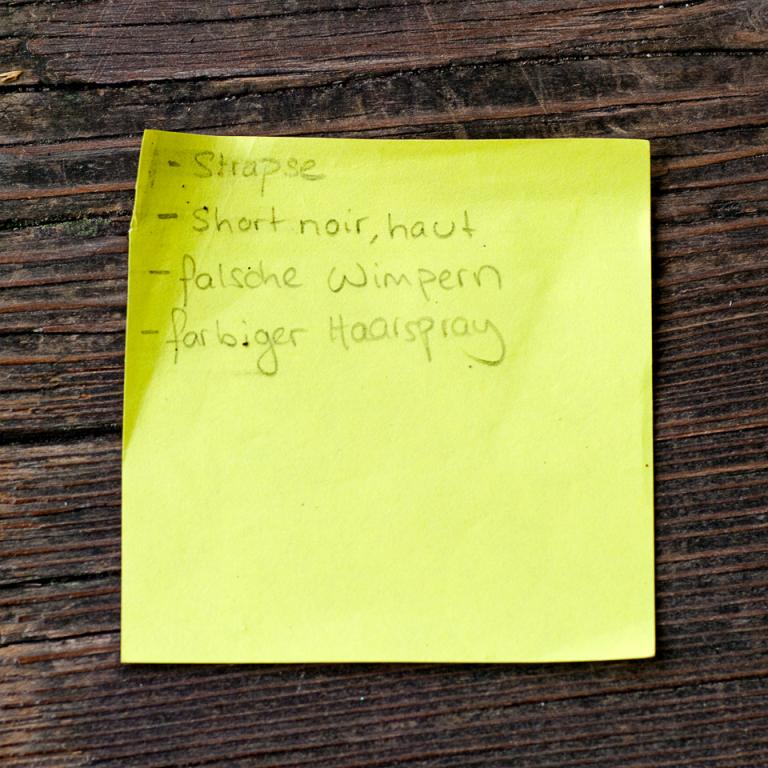 - Strapse
- Short noir, haut
- falsche Wimpern
- farbiger Haarspray